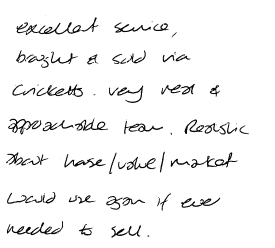 excellent service,
bought & sold via
Cricketts. very real &
approachable team. Realistic
about house/value/market
would use again if ever
needed to sell.